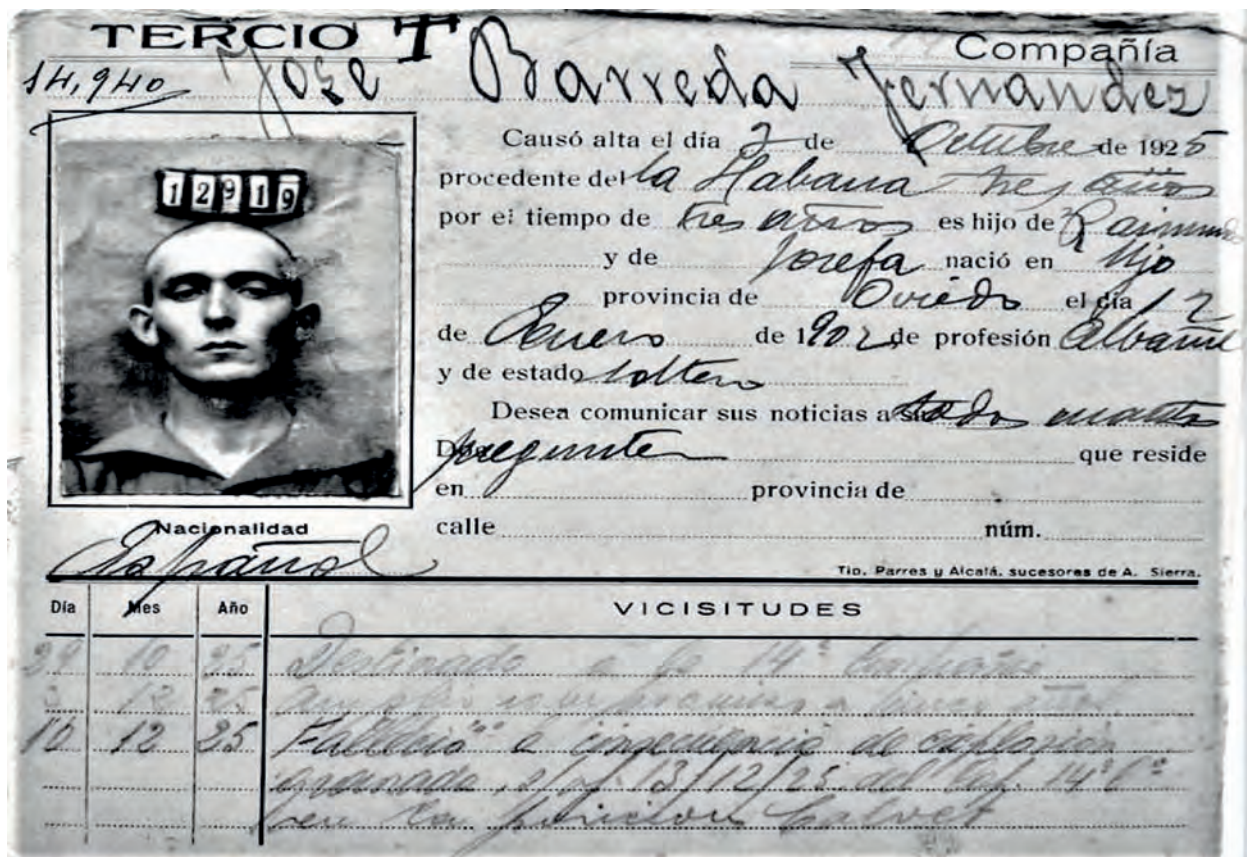 TERCIO T Compañía
14,940 José Barreda Fernandez
12919
Causó alta el día 2 de Octubre de 1925
procedente del la Habana tres años
por el tiempo de tres años es hijo de Raimundo
y de Josefa nació en
provincia de Oviedo el día 12
de Enero de 1902 de profesión Albañil
y de estado soltero
Desea comunicar sus noticias a todo
pregunte que reside
en provincia de
calle núm.
Nacionalidad
Español
Tip. Parres y Alcalá, sucesores de A. Sierra.
Día Mes Año VICISITUDES
29 10 25 Destinado a la 14ª
12 25
16 12 25 Falleció a consecuencia de explosión
granada, s/of. 13/12/25 del Cap. 14ª Cª
en la posición Calvet